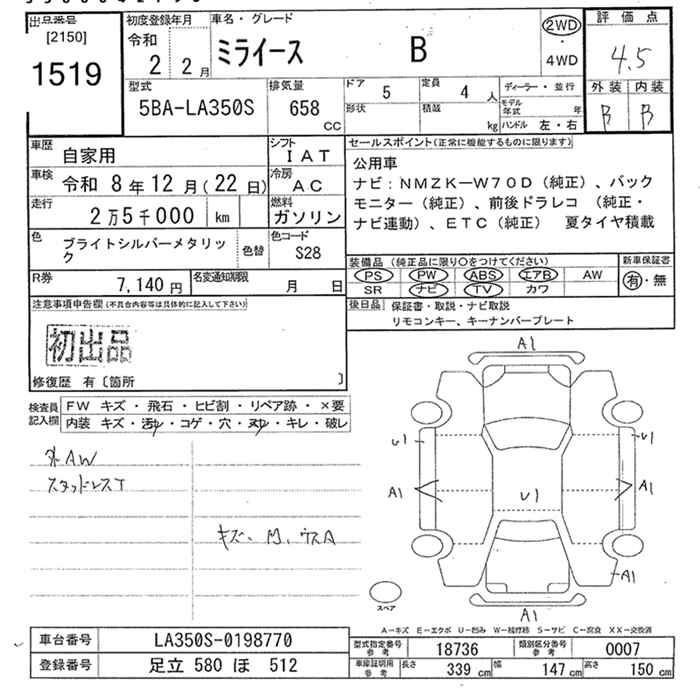 出品番号
[2150]
1519
初度登録年月
令和
2 2月
車名・グレード
ミライース B
2WD
・
4WD
評価点
4.5
外装 内装
B B
型式
5BA-LA350S
排気量
658
CC
ドア
5
定員
4 人
形状
積載
kg
ディーラー・並行
モデル年式 年
ハンドル 左・右
車歴
自家用
シフト
IAT
車検
令和 8年12月(22日)
冷房
AC
走行
2万5千000 km
燃料
ガソリン
色
ブライトシルバーメタリック
色替
色コード
S28
R券
7,140円
名変通知期限
月 日
セールスポイント(正常に機能するものに限ります)
公用車
ナビ:NMZK-W70D(純正)、バック
モニター(純正)、前後ドラレコ (純正・
ナビ連動)、ETC(純正) 夏タイヤ積載
装備品(純正品に限り〇をつけてください)
新車保証書
PS PW ABS エアB AW
SR ナビ TV カワ
有・無
後日品
保証書・取説・ナビ取説
リモコンキー、キーナンバープレート
注意事項申告欄(不具合内容等は具体的に記入して下さい)
初出品
修復歴 有〔箇所 〕
検査員記入欄
FW キズ・飛石・ヒビ割・リペア跡・×要
内装 キズ・汚レ・コゲ・穴・ヌケ・キレ・破レ
外AW
スタッドレスT
キズ、凹、ウスA
A1
U1
U1
A1
U1
A1
A1
A1
スペア
A-キズ E-エクボ U-凹み W-補修跡 S-サビ C-腐食 XX-交換済
車台番号
LA350S-0198770
登録番号
足立 580 ほ 512
型式指定番号 参考
18736
類別区分番号 参考
0007
車庫証明用 参考
長さ 339 cm
幅 147 cm
高さ 150 cm